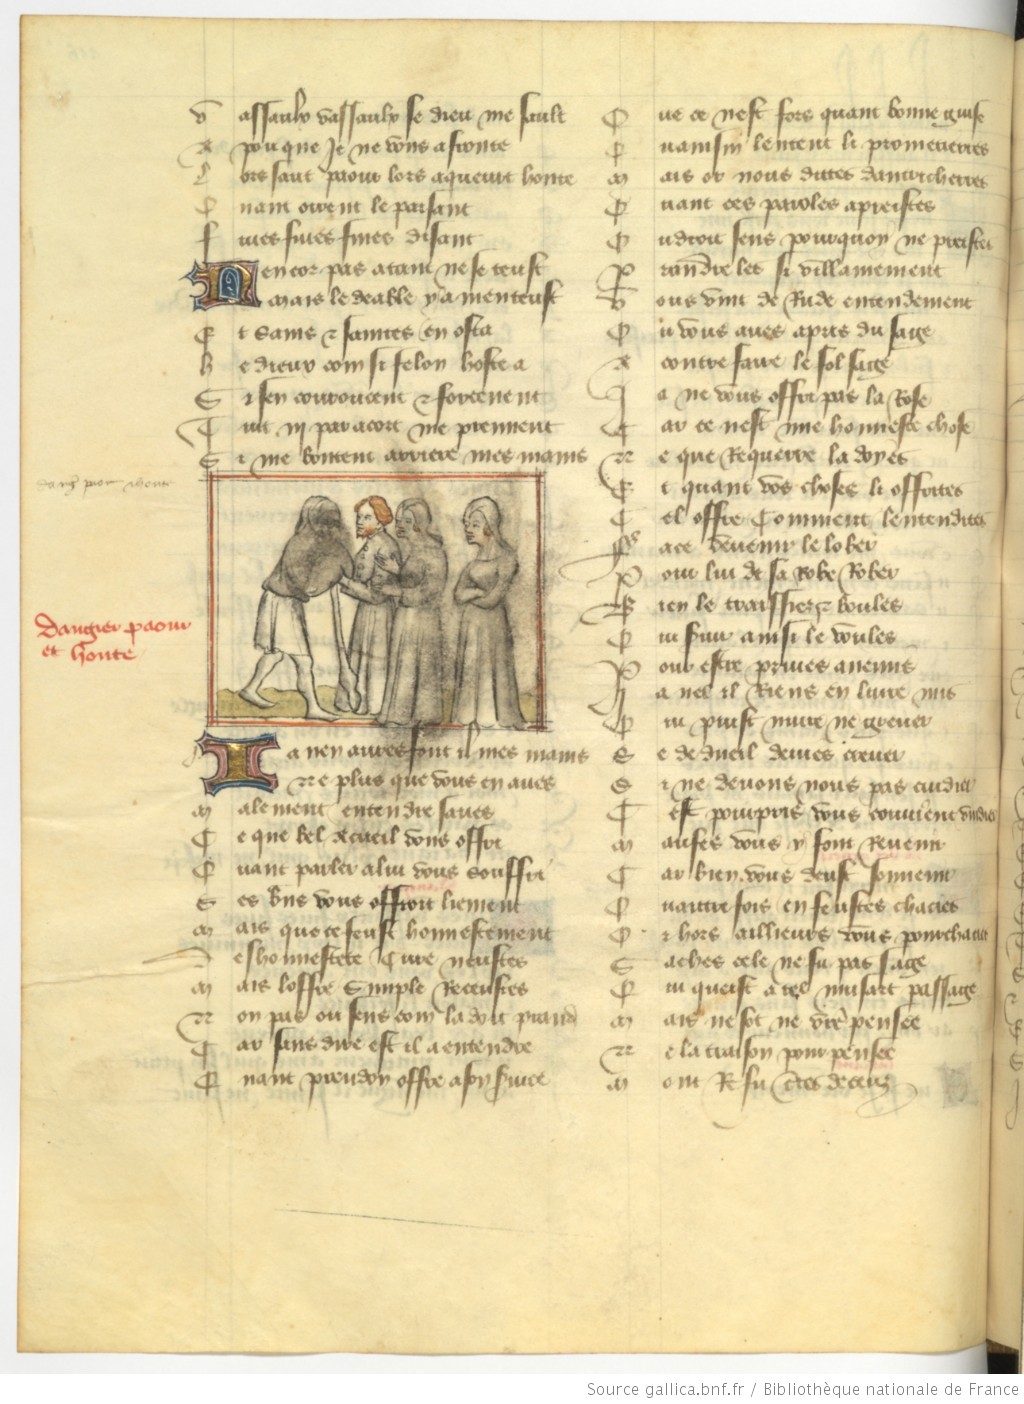 V assaulx vassaulx se dieu me sault
A pou que Je ne vous afronte
L ors saut paour lors aqueurt honte
Q uant oirent le paisant
F uies fuies fuies disant
N encor pas atant ne se teust
Mais le deable y amenteust
E t Sains et saintes en osta
H e dieux com si felon hoste a
S i sen couroucent et forcenent
T uit iii par acort me prennent
S i me boutent arriere mes mains
dang paour honte
Dangier paour
et honte
I a nen aures font il mes mains
Ne plus que vous en aves
M alement entendre saves
C e que bel acueil vous offri
Q uant parler a lui vous souffri
S es biens vous offroit liement
M ais que ce feust honnestement
D eshonnestete Cure neustes
M ais loffre Simple Receustes
N on pas ou sens com la doit prendre
C ar sans dire est il a entendre
Q uant preudon offre a son service
Q ue ce nest fors quant bonne guise
Q uainsin lentent li prometierres
M ais or nous dittes dantricherres
Q uant ces paroles apreistes
O u droit sens pourquoy ne preistes
P rendre les si villainement
V ous vint de Rude entendement
O u vous aves apris du sage
A contre faire le fol sage
I l ne vous offri pas la Rose
C ar ce nest mie honneste chose
N e que Requerre la doyes
E t quant vos choses li offrites
C el offre Comment lentendites
P our lui de sa Robe Rober
Q ui servir ainsi le voules
P our estre prives anemis
I a nest il Riens en livre mis
Q ui puist nuire ne grever
S e de dueil devies crever
S i ne devons nous pas cuidier
C est pourpris vous convient vuidier
M aufes vous y font Revenir
C ar bien vous deust souvenir
Q uautre fois en feustes chacies
O r hors ailleurs vous pourchacies
S aches cele ne fu pas sage
Q ui queist a tel musart passage
M ais ne sot ne vostre pensee
N e la traison pourpensee
Source gallica.bnf.fr / Bibliothèque nationale de France